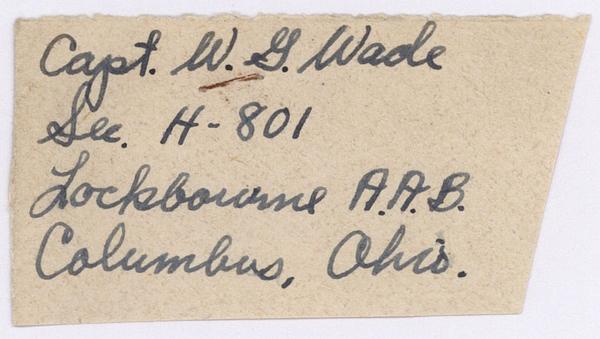 Capt. W. G. Wade
Sec. H-801
Lockbourne A.A.B.
Columbus, Ohio.